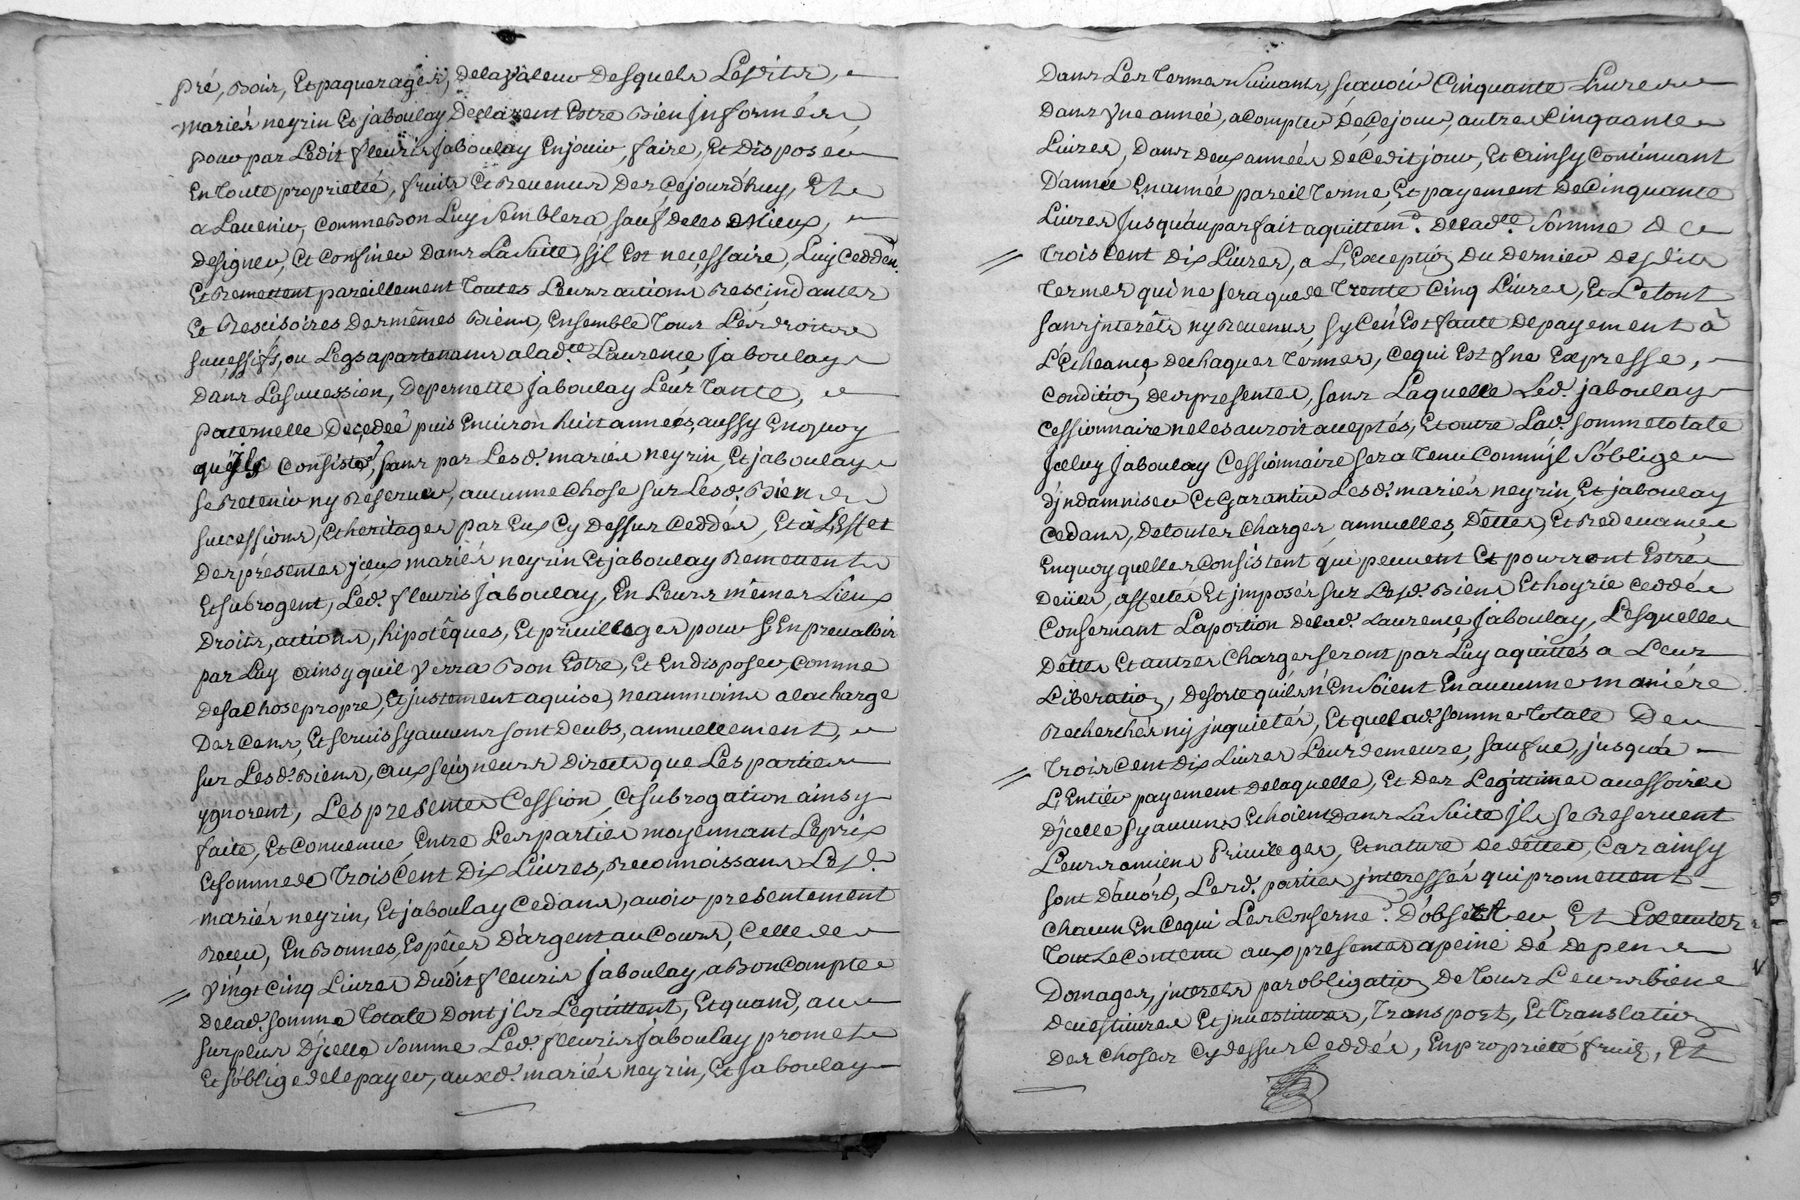 pré, Bois, Et paquerages, delavaleur desquels Lesdits,
mariés neyrin Et jaboulay declarent Estre Bien jnformés,
pour par Ledit fleuris Jaboulay Enjouir, faire, Et Disposer
En Toute proprietté, fruits Et Revenus Des cejourd'huy, Et
a Lavenir, comme Bon Luy semblera, sauf deles Mieux,
designer, Et confiner Dans La suite, sjl Est necessaire, Luy cedden.
Et Remettent pareillement Toutes Leurs actions Rescindantes
Et Rescisoires desmêmes Biens, Ensemble Tous Les droits
successifs, ou Legs apartenans alad.te Laurence Jaboulay
dans Lasuccession, Depernette Jaboulay Leur Tante,
paternelle Decedée puis Environ huit années, aussy Enquoy
qu'jls consiste, sans par Lesd. mariés neyrin, Et jaboulay
se Retenir ny Reserver, aucunne chose sur Lesd. Biens
successions, Et heritages par Eux Cy Dessus Ceddés, Et à L'effet
Des présentes jceux mariés neyrin Et jaboulay Remettent
Et subrogent, Led. fleuris Jaboulay, En Leurs mêmes Lieux
Droits, actions, hipotêques, Et privilleges pour s'En prevaloir
par Luy ainsy quil verra Bon Estre, Et En disposer, comme
desa chose propre, Et justement aquise, neammoins alacharge
Des cens, Et servis sy aucuns sont deubs, annuellement,
sur Lesd. Biens, aux seigneurs Directs que Les parties
ygnorent, Les presentes Cession, Et subrogation ainsy
faite, Et Convenue, Entre Les parties moyennant Leprix
Et somme de Trois Cent Dix Livres, Reconnoissans Lesd.
mariés neyrin, Et jaboulay Cedans, avoir presentement
Receu, En Bonnes, Espêces D'argent au Cours, Celle de
vingt Cinq Livres dudit fleuris Jaboulay, a Bon Compte
delad. somme Totale dont jls Lequittent, Et quand, au
surplus Djcelle somme Led. fleuris Jaboulay promet
Et s'oblige delepayer, auxd. mariés neyrin, Et Jaboulay
Dans Les Termes suivants, sçavoir Cinquante Livres
Dans une année, a compter De Cejour, autres Cinquante
Livres, Dans deux années de Cedit jour, Et ainsy Continuant
D'année En année pareil Terme, Et payement De Cinquante
Livres Jusqu'au parfait aquittem.t Delad.te Somme De
Trois Cent Dix Livres, a L'Exception Du Dernier Desdits
Termes qui ne sera que de Trente Cinq Livres, Et Letout
sans jnterêts ny Revenus, sy Cen'Est faute Depayement à
L'Echeance Dechaques Termes, Ce qui Est une Expresse,
Condition des presentes, sans Laquelle Led. jaboulay
Cessionnaire neles auroit acceptés, Et outre Lad. somme totale
Jceluy Jaboulay Cessionnaire sera Tenu Comm'jl s'oblige
djndamniser Et Garantir Lesd. mariés neyrin, Et jaboulay
Cedans, Detoutes charges, annuelles, Dêttes, Et Redevances
Enquoy quelles Consistent qui peuvent Et pourront Estre
Deües, affectés Et jmposés sur Lesd. Biens Et hoyrie ceddés
Consernant Laportion delad. Laurence Jaboulay, Lesquelles
Dêttes Et autres Charges seront par Luy aquittés a Leur
Liberation, desorte qu'ils n'En soient En aucunne maniére
Recherchés ny jnquietés, Et quelad. somme Totale De
Trois Cent Dix Livres Leur demeure, sauf ue, jusqu'à
L'Entier payement delaquelle, Et Des Legittimes accessoires
Djcelle sy aucuns Echoient dans La suite jls se Reservent
Leurs anciens Privileges, Et nature de dêttes, Car ainsy
sont D'acord, Lesd. parties jnteressés qui promettent
chacun En Cequi Les Conserne. D'observer, Et Executer
Tout Le contenu aux presentes apeine de depens
Domages, jnterets par obligation De Tous Leurs biens
Devestitures Et jnvestitures, Transport, Et Translation
Des Choses Cydessus Ceddés, En propriété fruits, Et